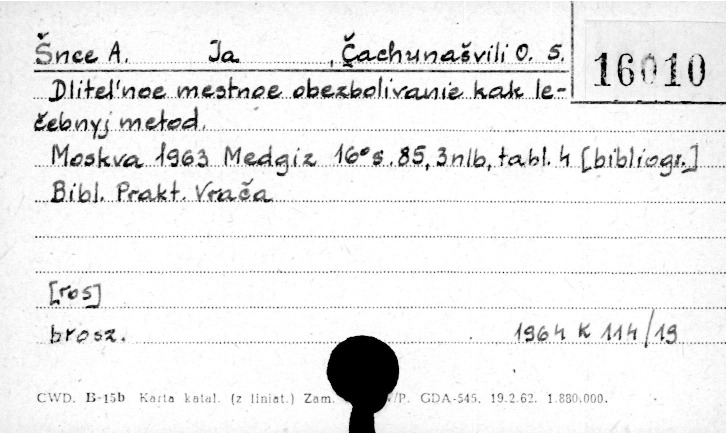 Šnce A. Ja , Čachunašvili O. S.
16010
Dlitel'noe mestnoe obezbolivanie kak le-
čebnyj metod.
Moskva 1963 Medgiz 16° s. 85, 3nlb, tabl. 4 [bibliogr.]
Bibl. Prakt. Vrača
[ros]
brosz. 1964 K 114/19
CWD. B-15b Karta katal. (z liniat.) Zam. /P. GDA-545. 19.2.62. 1.880.000.